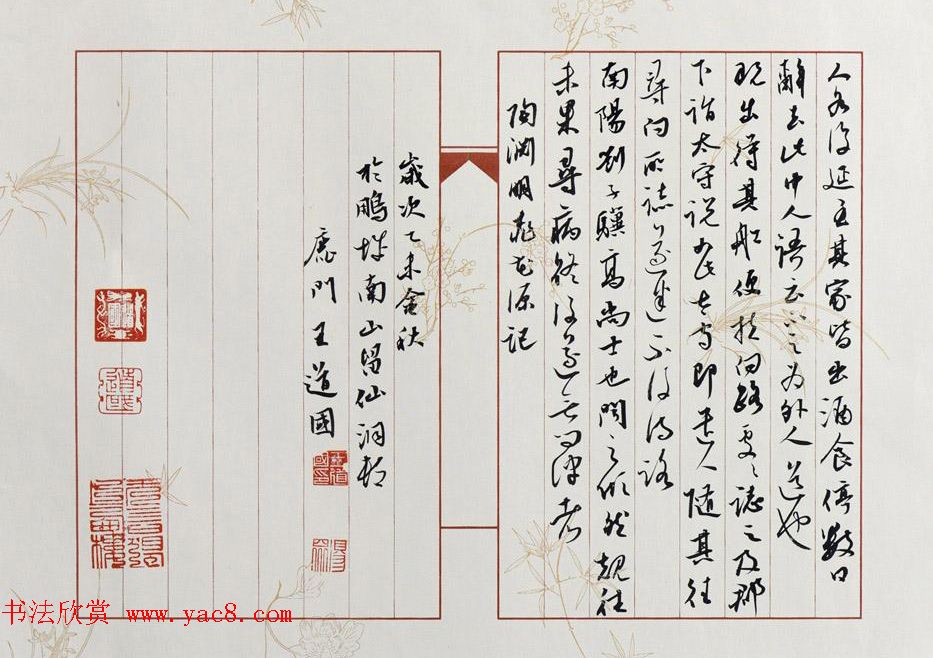 人各復延至其家皆出酒食停數日
辭去此中人語云不足為外人道也
既出得其船便扶向路處〻誌之及郡
下詣太守说如此太守即遣人隨其往
尋向所誌遂迷不復得路
南陽劉子驥高尚士也聞之欣然規往
未果尋病終後遂無問津者
陶淵明桃花源記
歲次乙未金秋
於鵬城南山留仙洞村
門王道國
王道國印
道國
书法欣赏 www.yac8.com